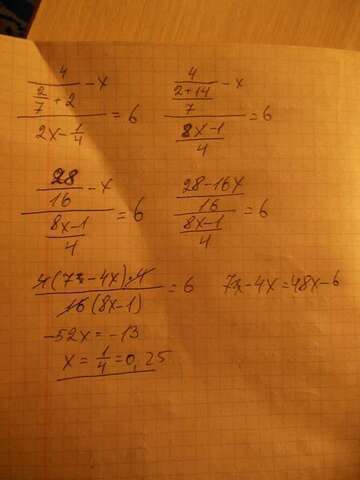 \frac{\frac{4}{\frac{2}{7}+2}-x}{2x-\frac{1}{4}}=6 \frac{\frac{4}{\frac{2+14}{7}}-x}{\frac{8x-1}{4}}=6
\frac{\frac{28}{16}-x}{\frac{8x-1}{4}}=6 \frac{\frac{28-16x}{16}}{\frac{8x-1}{4}}=6
\frac{4(7-4x)·4}{16(8x-1)}=6 7-4x=48x-6
-52x=-13
x=\frac{1}{4}=0,25